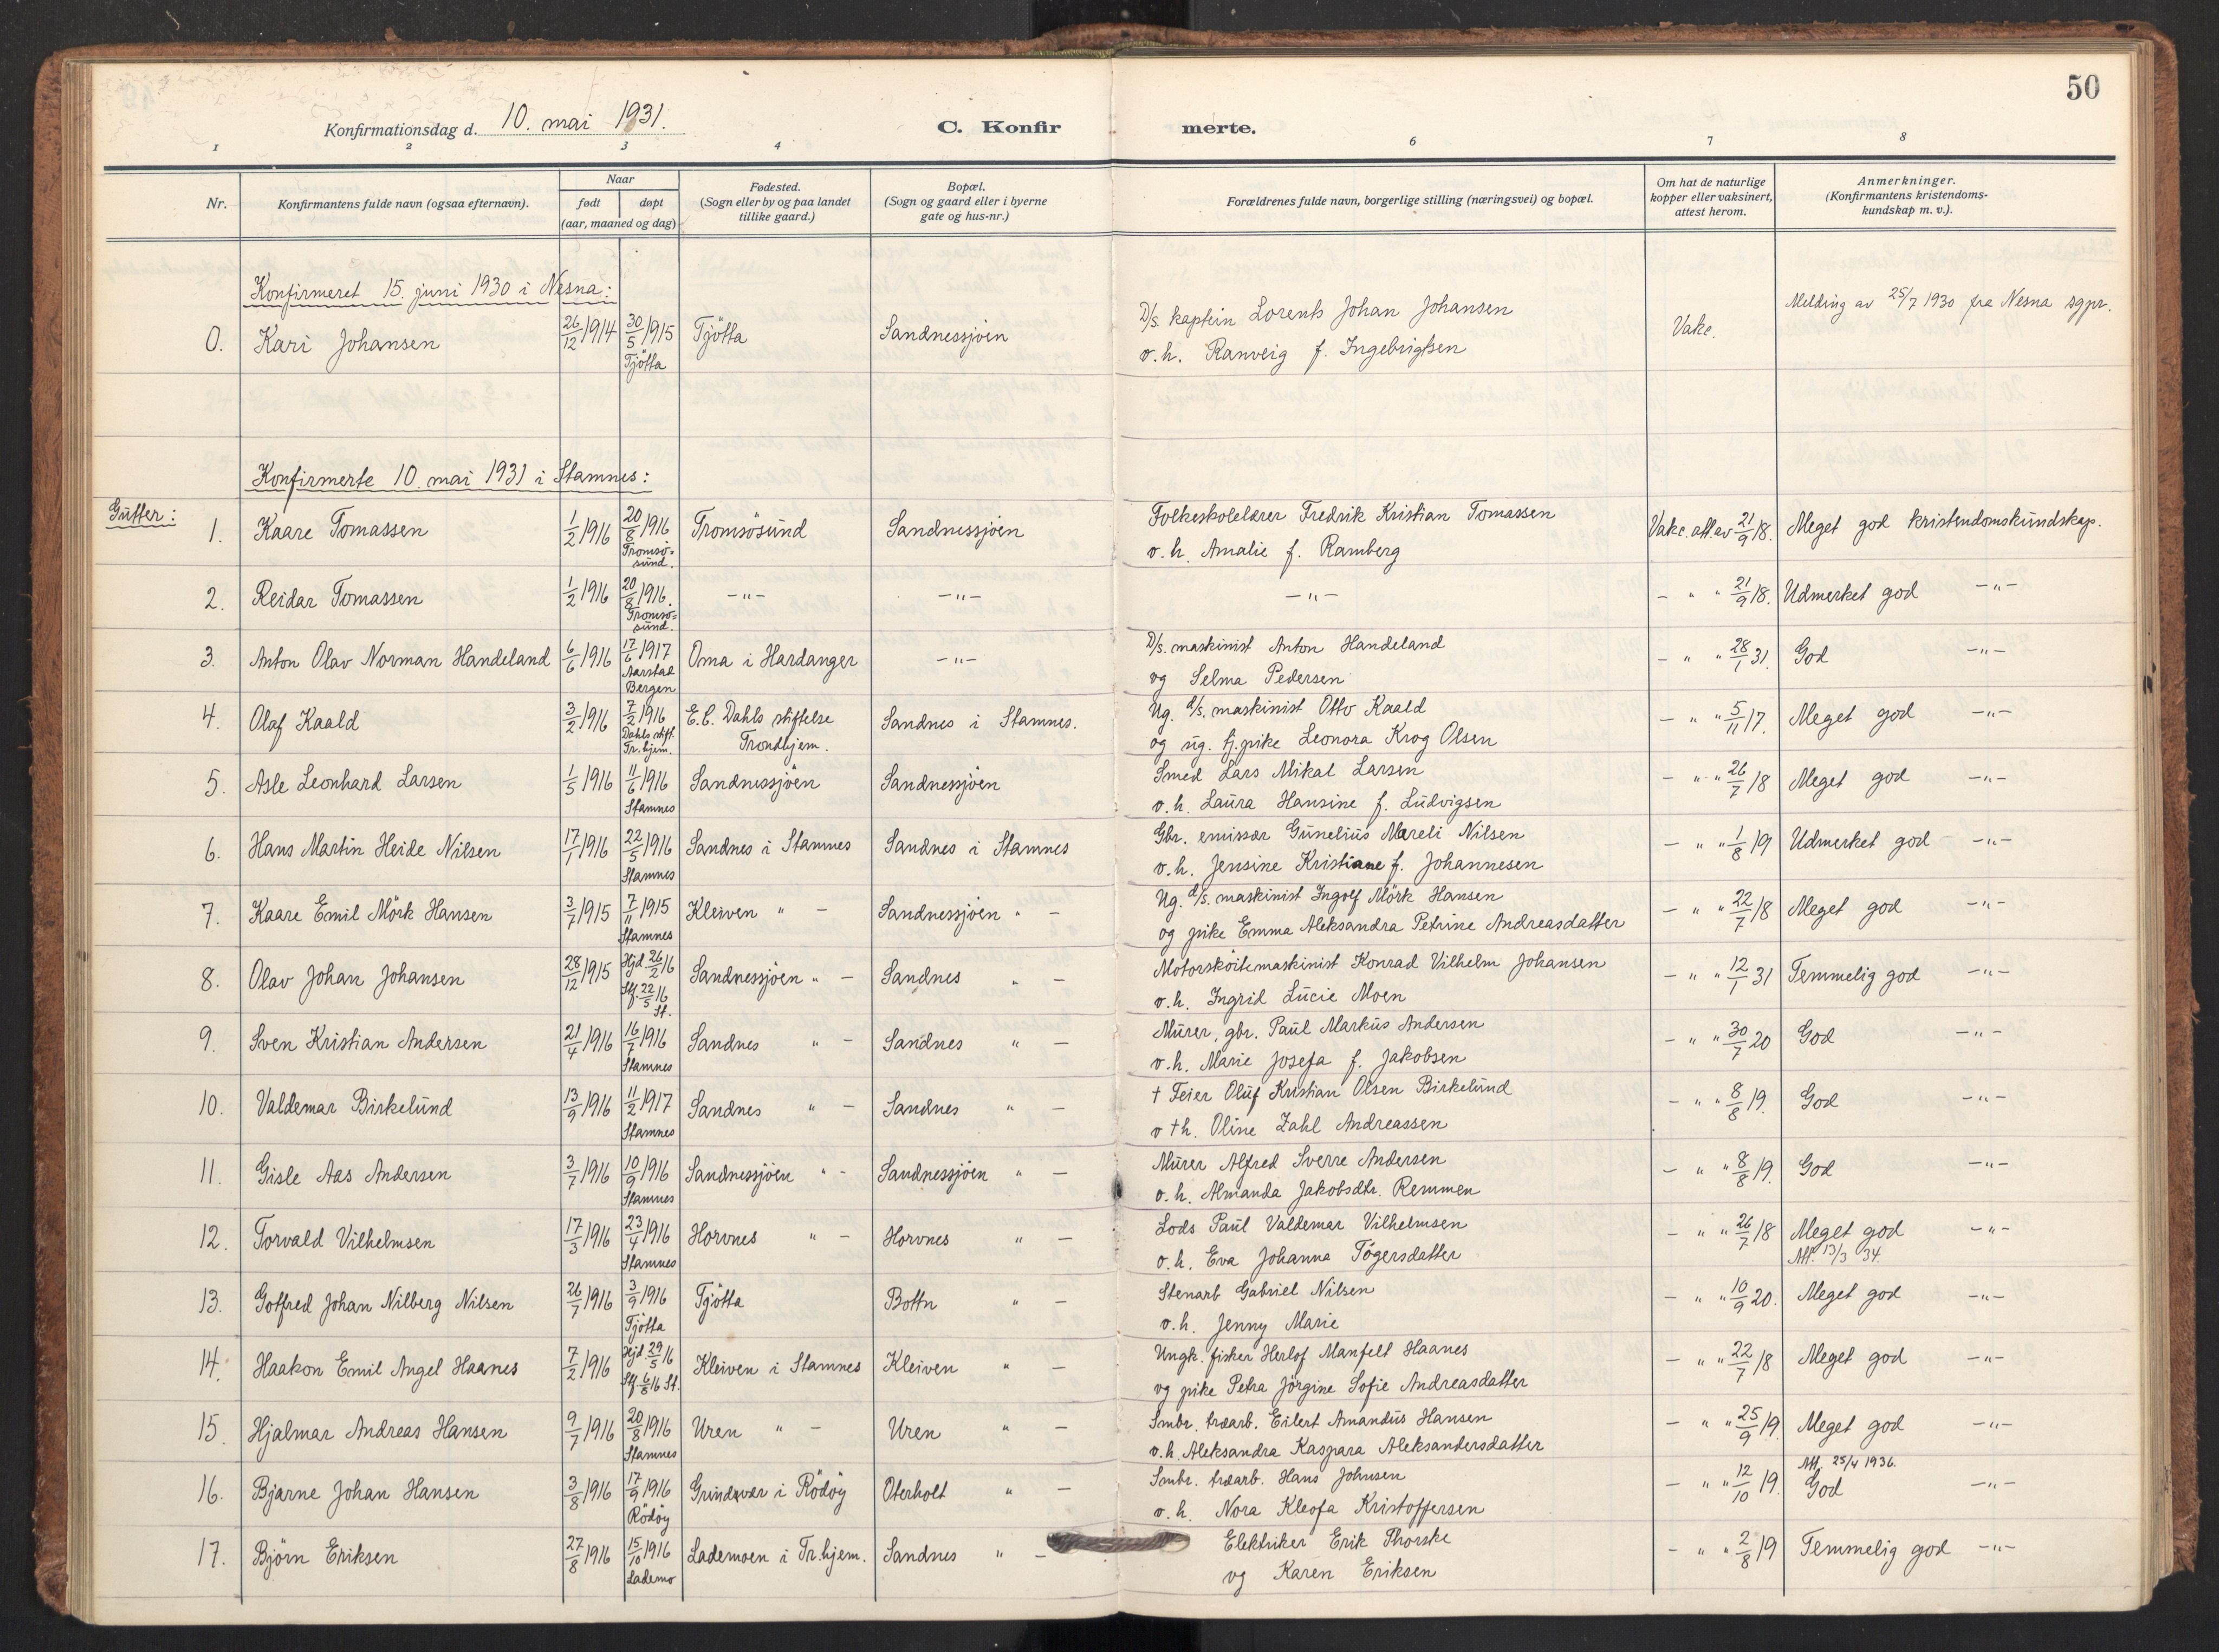 50
Konfirmationsdag d. 10. mai 1931.
C. Konfir merte.
1 2 3 4 6 7 8
Nr.
Konfirmantens fulde navn (ogsaa efternavn).
Naar
født døpt
(aar, maaned og dag)
Fødested.
(Sogn eller by og paa landet
tillike gaard.)
Bopæl.
(Sogn og gaard eller i byerne
gate og hus-nr.)
Forældrenes fulde navn, borgerlige stilling (næringsvei) og bopæl.
Om hat de naturlige
kopper eller vaksinert,
attest herom.
Anmerkninger.
(Konfirmantens kristendoms-
kundskap m. v.).
Konfirmeret 15. juni 1930 i Nesna:
0. Kari Johansen 26/12 1914 30/5 1915 Tjötta Sandnessjöen D/s. kaptein Lorents Johan Johansen Vakc. Melding av 25/7 1930 fra Nesna sgpr.
Tjötta o. h. Ranveig f. Ingebrigtsen
Konfirmerte 10. mai 1931 i Stamnes:
Gutter:
1. Kaare Tomassen 1/2 1916 20/8 1916 Tromsösund Sandnessjöen Folkeskolelærer Fredrik Kristian Tomassen Vakc. att. av 21/9 18. Meget god kristendomskundskap.
Tromsö=
sund. o. h. Amalie f. Ramberg
2. Reidar Tomassen 1/2 1916 20/8 1916. -"- -"- -"- - " " 21/9 18. Udmerket god -"-
Tromsö=
sund.
3. Anton Olav Norman Handeland 6/6 1916 17/6 1917 Oma i Hardanger -"- D/s. maskinist Anton Handeland - " " 28/1 31. God -"-
Aarstad
Bergen og Selma Pedersen
4. Olaf Kaald 3/2 1916 7/2 1916 E. C. Dahls stiftelse Sandnes i Stamnes. Ug. d/s. maskinist Otto Kaald - " " 5/11 17. Meget god -"-
Dahls stift.
Tr.hjem. Trondhjem. og ug. tj.pike Leonora Krog Olsen
5. Asle Leonhard Larsen 1/5 1916 11/6 1916 Sandnessjöen Sandnessjöen Smed Lars Mikal Larsen - " " 26/7 18 Meget god -"-
Stamnes o. h. Laura Hansine f. Ludvigsen
6. Hans Martin Heide Nilsen 17/1 1916 22/5 1916 Sandnes i Stamnes Sandnes i Stamnes Gbr. emissær Gunelius Mareli Nilsen - " " 1/8 19 Udmerket god -"-
Stamnes o. h. Jensine Kristiane f. Johannesen
7. Kaare Emil Mörk Hansen 3/7 1915 7/11 1915 Kleiven " - Sandnessjöen " - Ug. d/s. maskinist Ingolf Mörk Hansen - " " 22/7 18 Meget god -"-
Stamnes og pike Emma Aleksandra Petrine Andreasdatter
8. Olav Johan Johansen 28/12 1915 Hjd 26/2 16 Sandnessjöen " - Sandnes " - Motorsköitemaskinist Konrad Vilhelm Johansen - " " 12/1 31 Temmelig god -"-
Stf. 22/5 16
St. o. h. Ingrid Lucie Moen
9. Sven Kristian Andersen 21/4 1916 16/7 1916 Sandnes " - Sandnes " - Murer, gbr. Paul Markus Andersen - " " 30/7 20 God -"-
Stamnes o. h. Marie Josefa f. Jakobsen
10. Valdemar Birkelund 13/9 1916 11/2 1917 Sandnes " - Sandnes " - † Feier Oluf Kristian Olsen Birkelund - " " 8/8 19. God -"-
Stamnes o † h. Oline Zahl Andreassen
11. Gisle Aas Andersen 3/7 1916 10/9 1916 Sandnessjöen " - Sandnessjöen " - Murer Alfred Sverre Andersen - " " 8/8 19. God -"-
Stamnes o. h. Almanda Jakobsdtr. Remmen
12. Torvald Vilhelmsen 17/3 1916 23/4 1916 Horvnes " - Horvnes " - Lods Paul Valdemar Vilhelmsen - " " 26/7 18 Meget god -"-
Stamnes o. h. Eva Johanna Tögersdatter Att. 13/3 34.
13. Gotfred Johan Nilberg Nilsen 26/7 1916 3/9 1916 Tjötta Bottn " - Stenarb Gabriel Nilsen - " " 10/9 20. Meget god -"-
Tjötta o. h. Jenny Marie
14. Haakon Emil Angel Haanes 7/2 1916 Hjd 29/5 16 Kleiven i Stamnes Kleiven " - Ungk. fisker Herlof Manfelt Haanes - " " 22/7 18 Meget god -"-
Stf. 6/8 16 St. og pike Petra Jörgine Sofie Andreasdatter
15. Hjalmar Andreas Hansen 9/7 1916 20/8 1916 Uren " - Uren " - Smbr. træarb. Eilert Amandus Hansen - " " 25/9 19. Meget god -"-
Stamnes o. h. Aleksandra Kaspara Aleksandersdatter
Att. 25/4 1936.
16. Bjarne Johan Hansen 3/8 1916 17/9 1916 Grindvær i Rödöy Oterholt " - Smbr. træarb. Hans Johnsen - " " 12/10 19. God -"-
Rödöy o. h. Nora Kleofa Kristoffersen
17. Björn Eriksen 27/8 1916 15/10 1916 Lademoen i Tr.hjem. Sandnes " - Elektriker Erik Thorske - " " 2/8 19 Temmelig god -"-
Lademo og Karen Eriksen